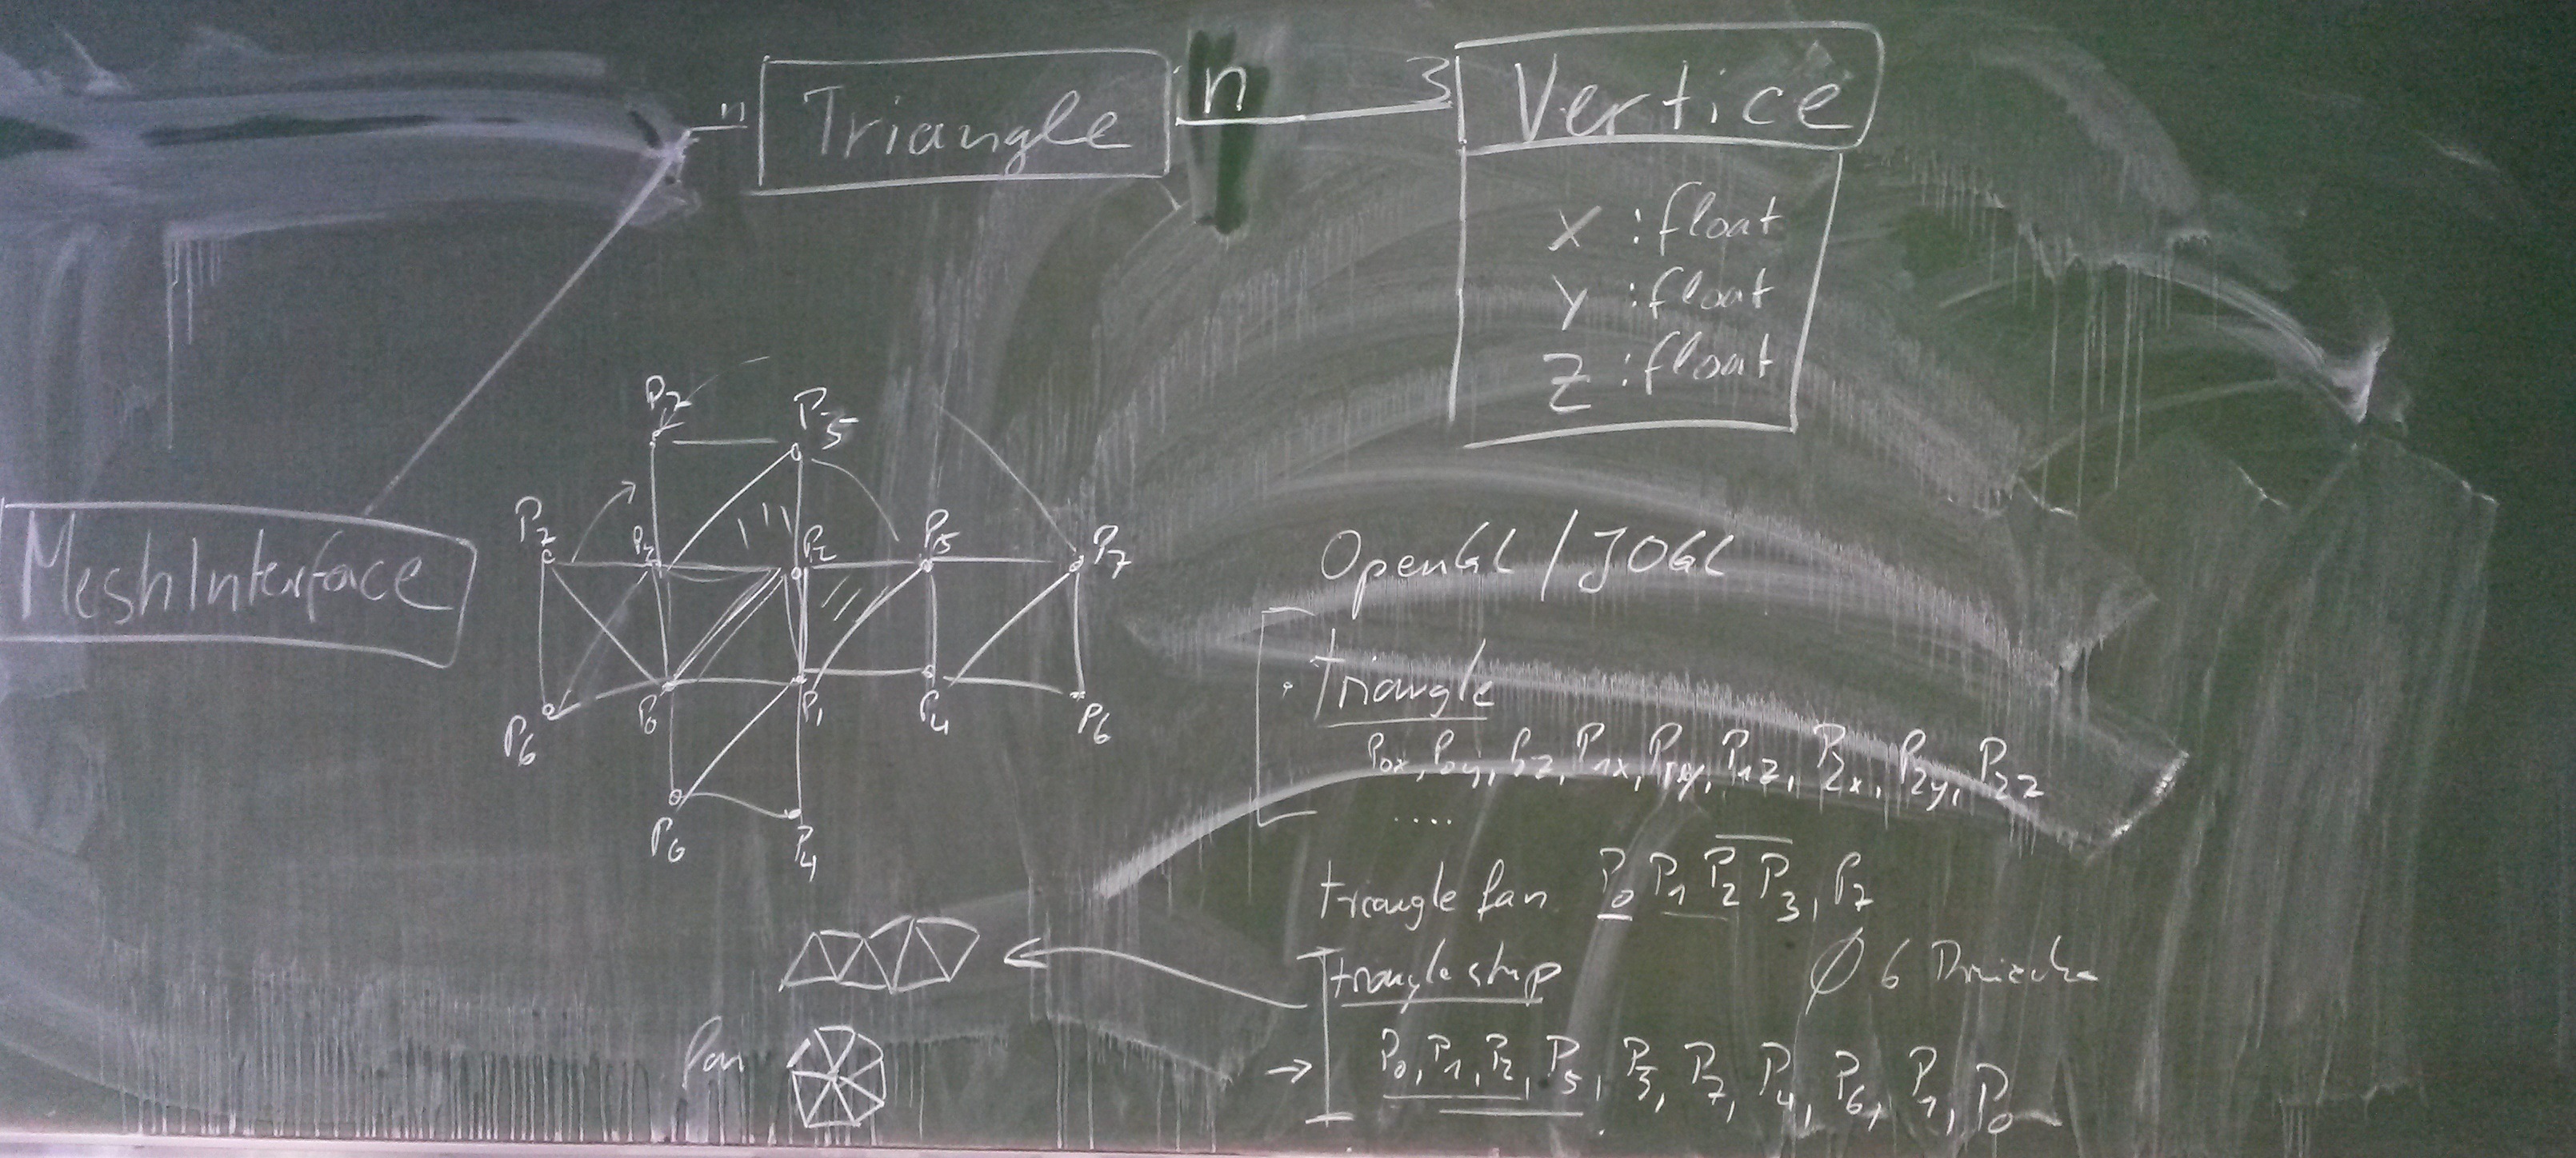 n Triangle n 3 Vertice
x : float
y : float
z : float
MeshInterface
P7 P5
P7 P2 P5 P7
P6 P0 P1 P4 P6
P6 P4
OpenGL / JOGL
· Triangle
P0x, P0y, P0z, P1x, P1y, P1z, P2x, P2y, P2z
....
triangle fan P0 P1 P2 P3, P7
triangle strip Ø 6 Dreiecke
fan
→ P0, P1, P2, P5, P3, P7, P4, P6, P1, P0